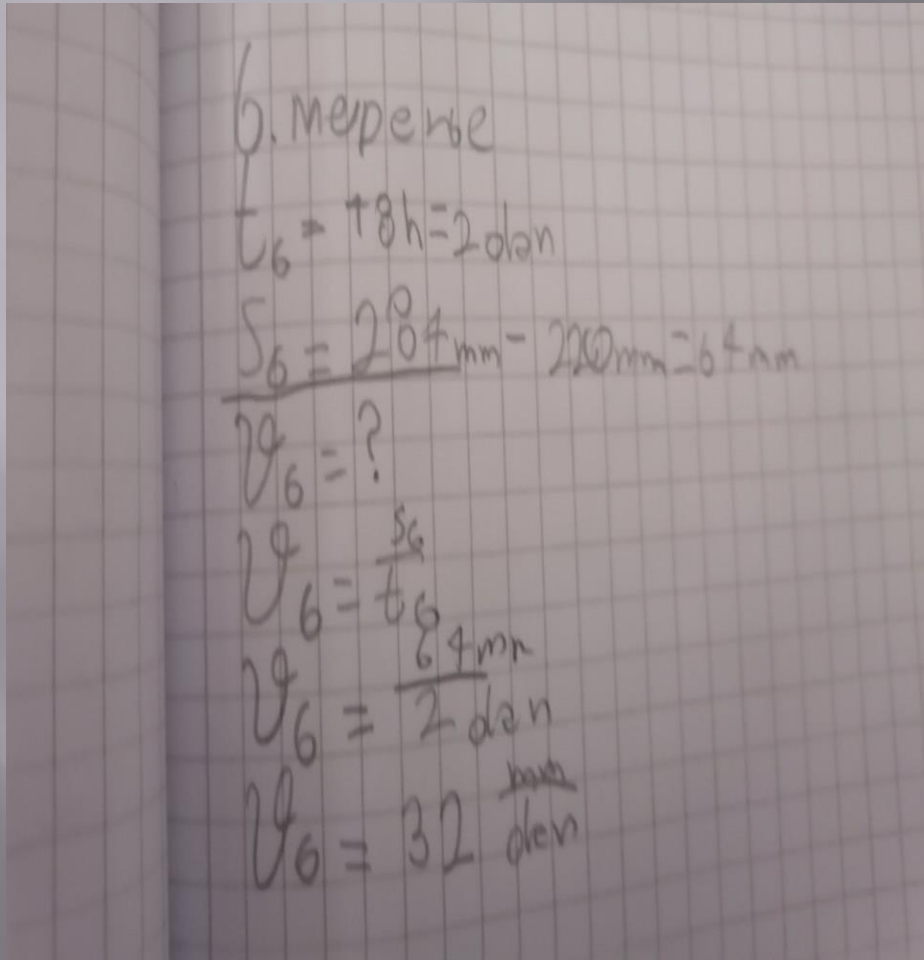 6. мерење
t₆ = 48h = 2 dan
S₆ = 284mm - 220mm = 64mm
𝜗₆ = ?
𝜗₆ = S₆/t₆
𝜗₆ = 64mm/2 dan
𝜗₆ = 32 mm/dan